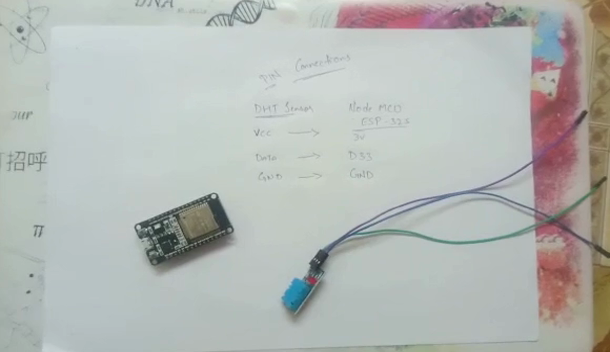 DNA
Pin Connections
DHT Sensor Node MCU
ESP-32S
VCC → 3v
Data → D33
GND → GND
打招呼
π